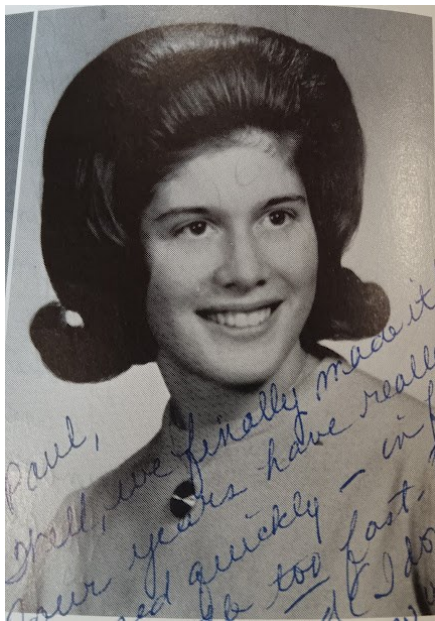 Paul,
Well, we finally made it!
Four years have really
ed quickly - in
too fast.
I do